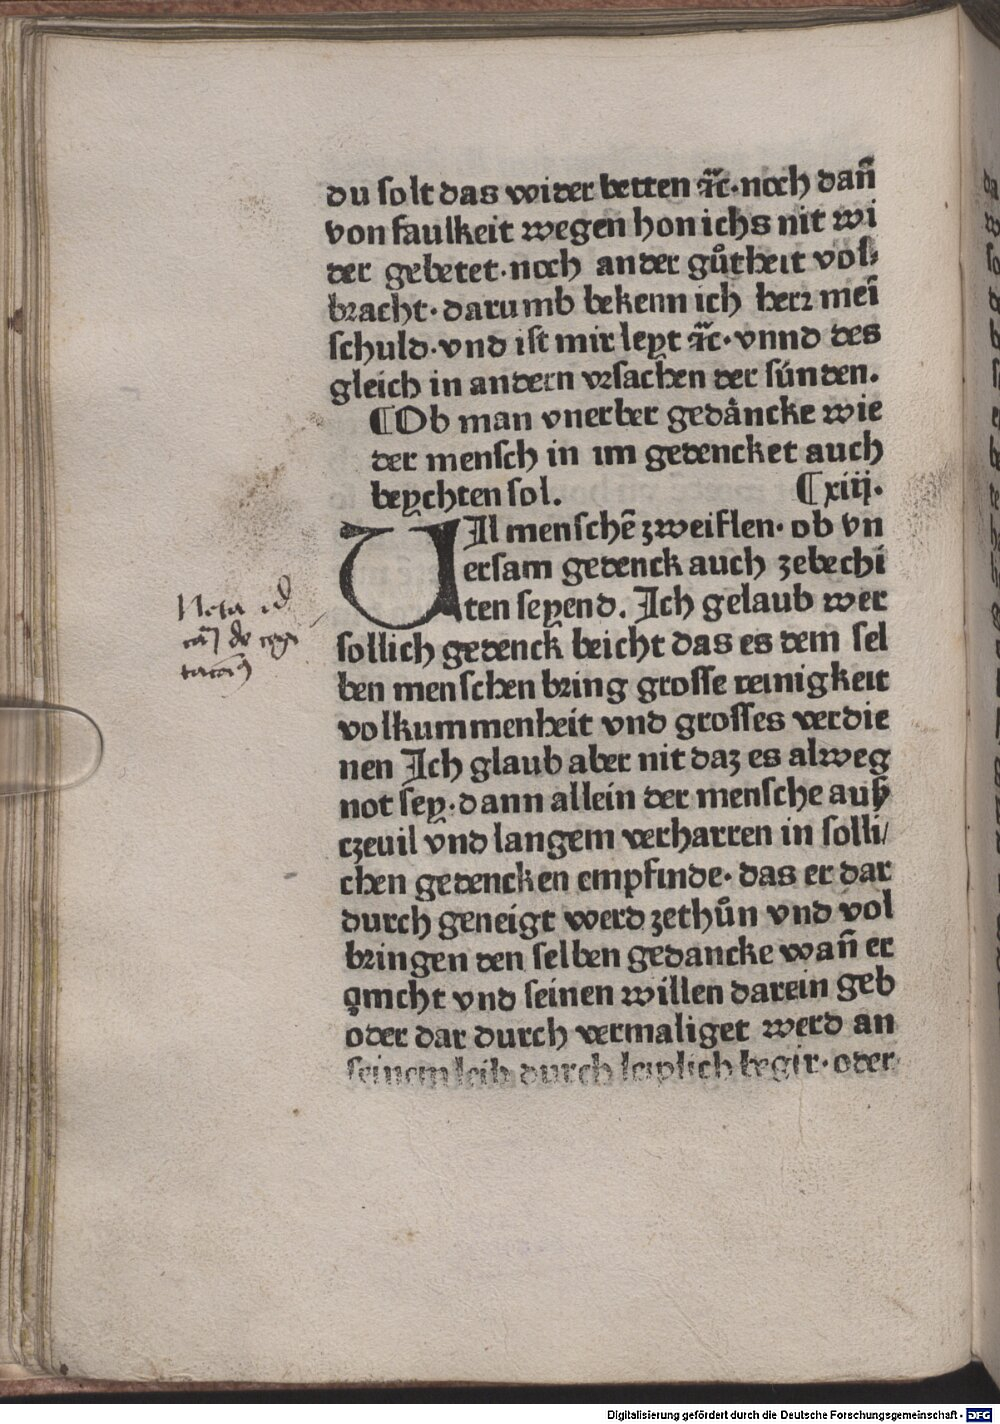 du solt das wider betten ꝛc̃·noch dañ
von faulkeit wegen hon ichs nit wi
der gebetet·noch ander gůtheit vol⸗
bracht·darumb bekenn ich herꝛ mein̄
schuld·vnd ist mir leyt ꝛc̃·vnnd des
gleich in andern vꝛsachen der sünden.
¶Ob man vnerber gedäncke wie
der mensch in im gedencket auch
beychten sol. ¶xiij.
VIl menschē zweiflen·ob vn
ersam gedenck auch zebechi
ten seyend. Ich gelaub wer
sollich gedenck beicht das es dem sel
ben menschen bring grosse reinigkeit
volkummenheit vnd grosses verdie
nen Ich glaub aber nit daz es alweg
not sey·dann allein der mensche auß
czeuil vnd langem verharren in solli/
chen gedencken empfinde·das er dar
durch geneigt werd zethůn vnd vol
bringen den selben gedancke wañ er
mcht vnd seinen willen darein geb
oder dar durch vermaliget werd an
seinem leib durch leiplich begir·oder
Nota
de
Digitalisierung gefördert durch die Deutsche Forschungsgemeinschaft - DFG